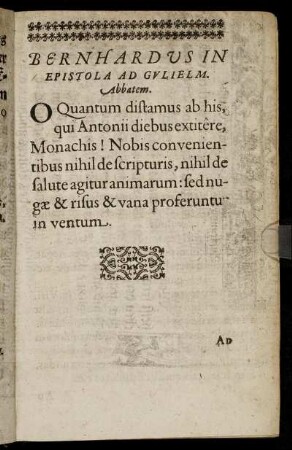 BERNHARDVS IN
EPISTOLA AD GVLIELM.
Abbatem.
O Quantum distamus ab his,
qui Antonii diebus extitère,
Monachis ! Nobis convenien-
tibus nihil de scripturis, nihil de
salute agitur animarum: sed nu-
gæ & risus & vana proferuntur
in ventum.
AD